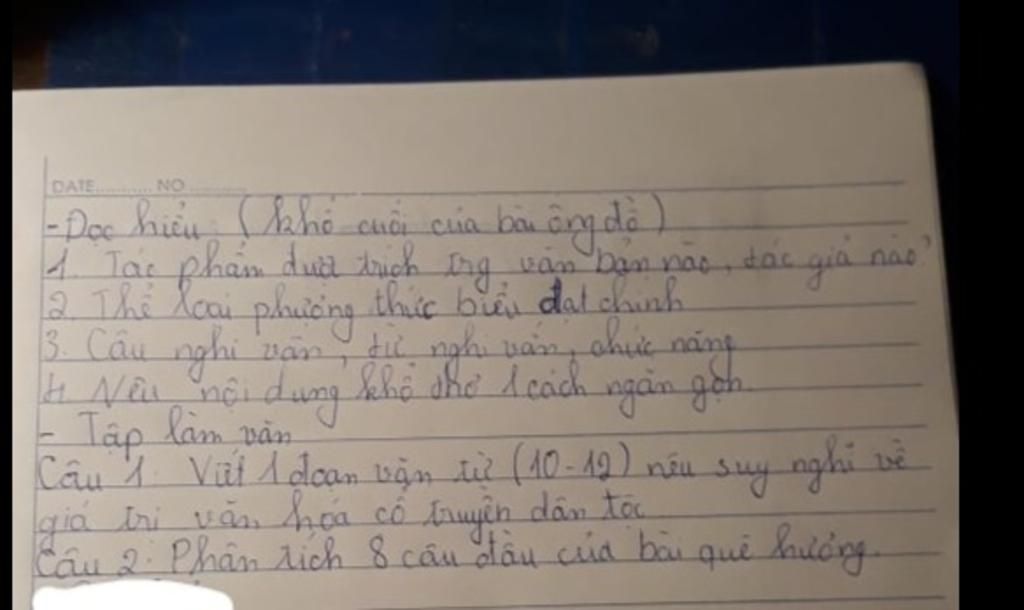 DATE.......... NO..........
- Đọc hiểu: (khổ cuối của bài ông đồ)
1. Tác phẩm được trích trg văn bản nào, tác giả nào?
2. Thể loại phương thức biểu đạt chính
3. Câu nghi vấn, từ nghi vấn, chức năng
4. Nêu nội dung khổ thơ 1 cách ngắn gọn.
- Tập làm văn
Câu 1: Viết 1 đoạn văn từ (10-12) nêu suy nghĩ về
giá trị văn hóa cổ truyền dân tộc
Câu 2: Phân tích 8 câu đầu của bài quê hương.